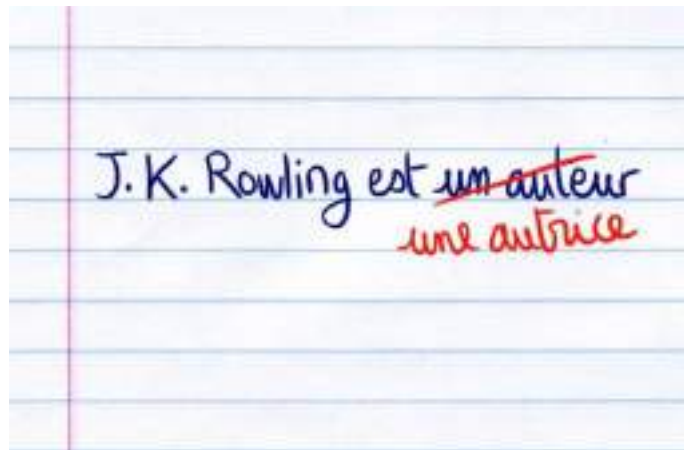 J.K. Rowling est un auteur
une autrice